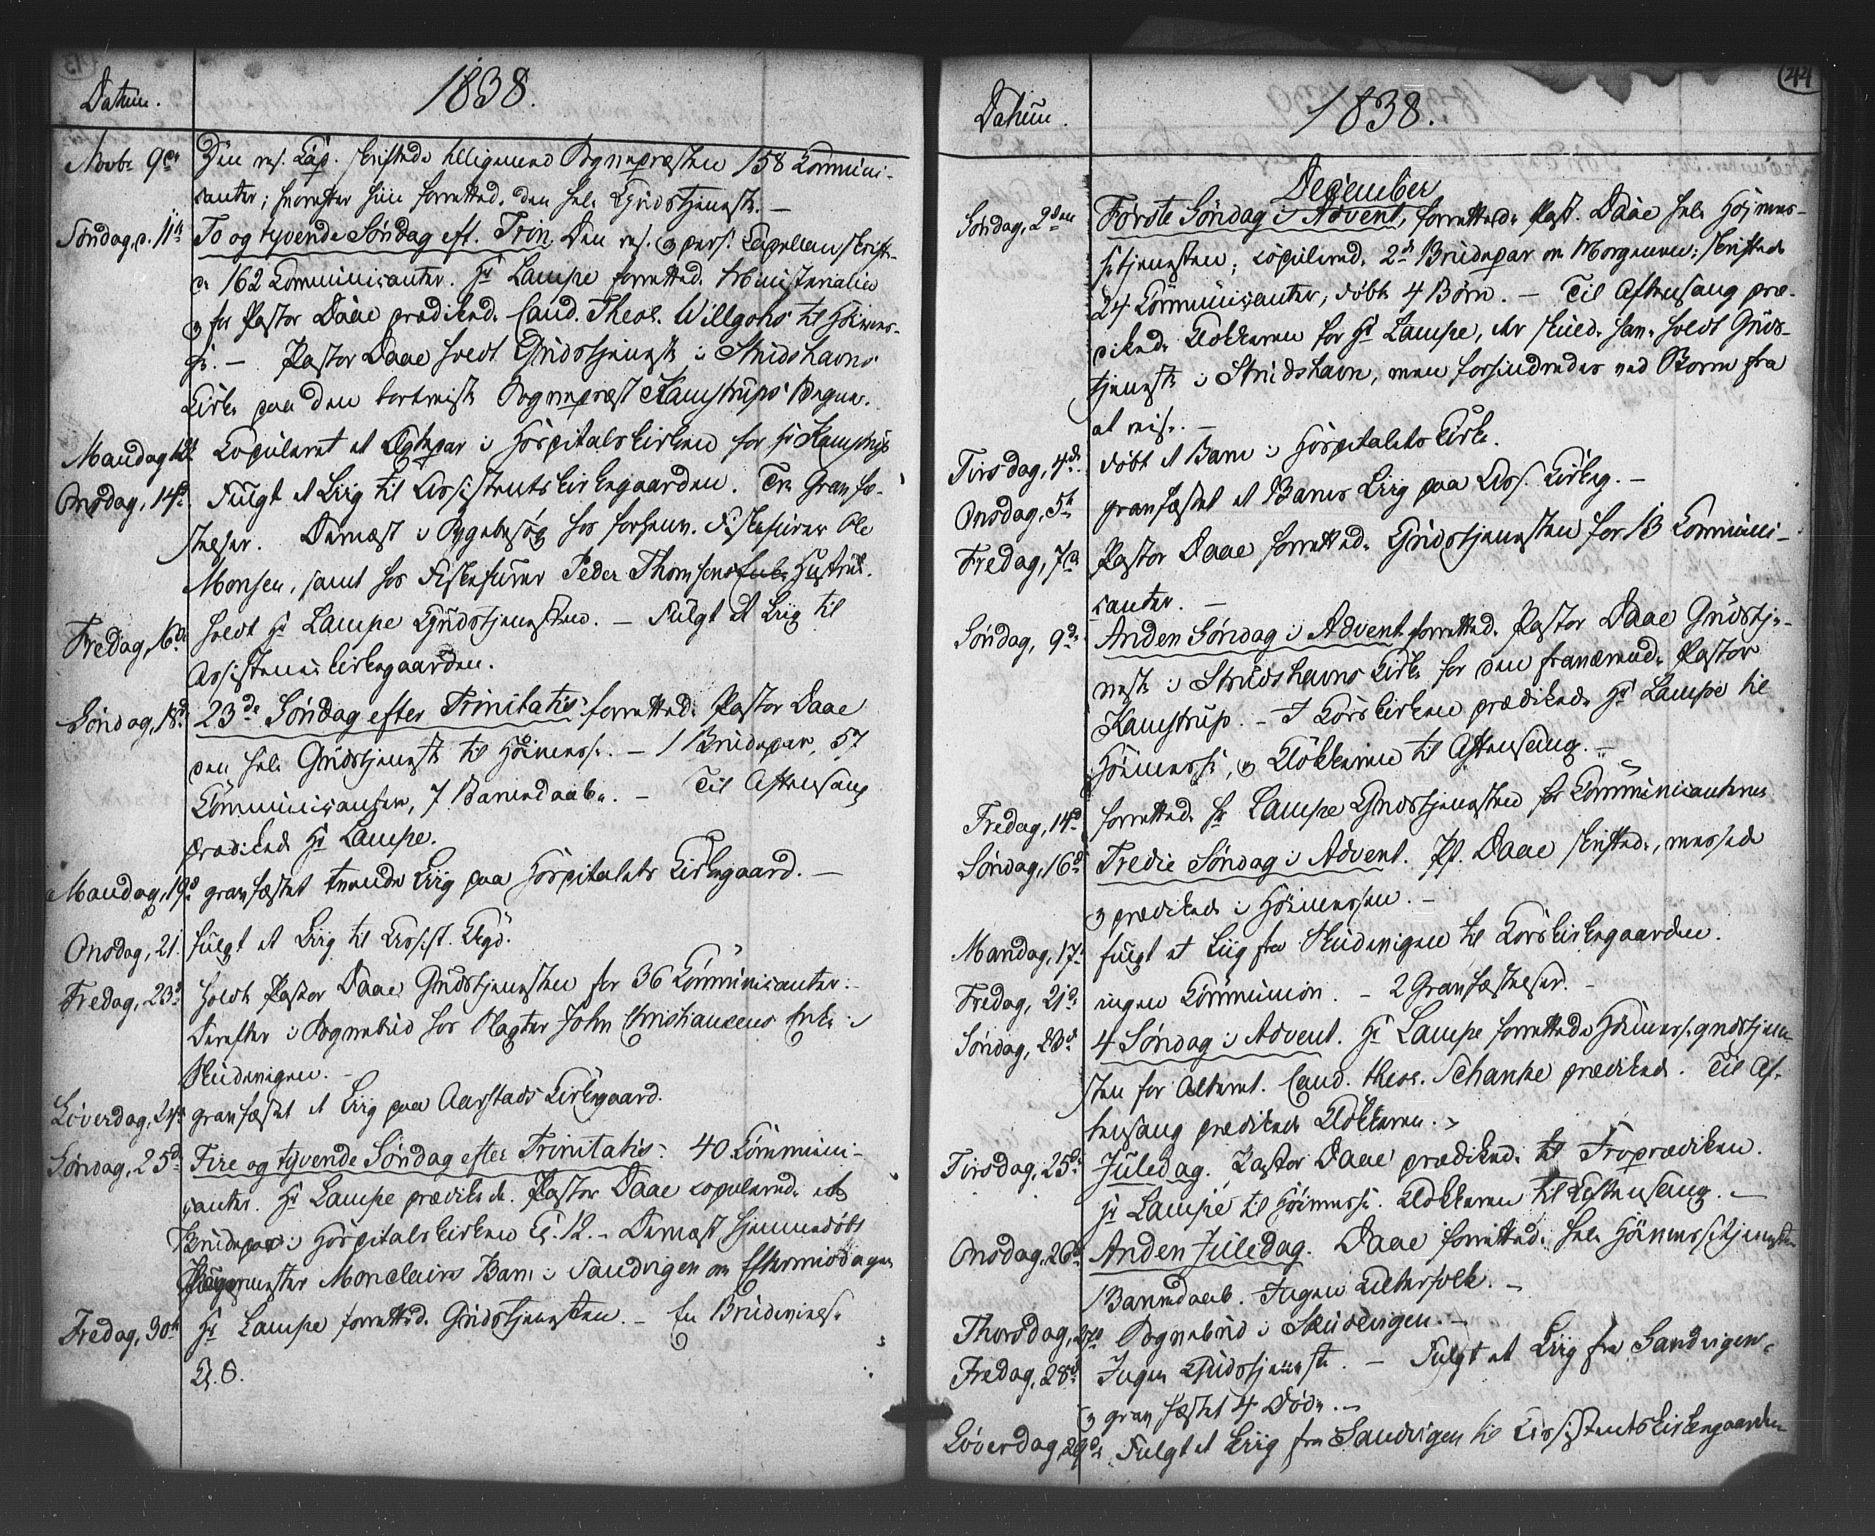 43
Datum.
1838.
Novbr 9de
Den res. Cap. skriftede tilligemed Sognepræsten 158 Communi-
canter; hvorefter hiin forrettede den hele Gudstjeneste. —
Søndag, d. 11te
To og tyvende Søndag eft. Trin. Den res. og pers. Capellan skrifte-
de 162 Communicanter. Hr Lampe forrettede Ministerialia
og for Pastor Daae prædikede Cand. Theol. Willgohs til Høimes-
se. — Pastor Daae holdt Gudstjeneste i Strudshavns
Kirke paa den bortreiste Sognepræst Kamstrups Vegne.
Mandag 12te
Copuleret et Ægtepar i Hospitalskirken for Hr Kamstrup
Onsdag, 14de
Fulgt et Liig til Assistentskirkegaarden. Tre Gravfæ-
stelser. Dernæst i Sygebesøg hos forhenv. Fiskefurer Ole
Monsen, samt hos Fiskefurer Peder Thomsens Hustrue.
Fredag, 16de
holdt Hr Lampe Gudstjenesten. — Fulgt et Liig til
Assistents kirkegaarden.
Søndag, 18de
23de Søndag efter Trinitatis forrettede Pastor Daae
den hele Gudstjeneste til Høimesse. — 1 Brudepar, 57
Communicanter, 7 Barnedaabe. — Til Aftensang
prædikede Hr Lampe.
Mandag, 19de
gravfæstet tvende Liig paa Hospitalets Kirkegaard. —
Onsdag, 21.
fulgt et Liig til Assist. Kgd.
Fredag, 23de
holdt Pastor Daae Gudstjenesten for 36 Communicanter.
Derefter i Sognebud hos Slagter John Christiansens Enke i
Skudevigen. —
Løverdag, 24de
gravfæstet et Liig paa Aarstads Kirkegaard.
Søndag, 25de
Fire og tyvende Søndag efter Trinitatis. 40 Communi-
canter. Hr Lampe prædikede. Pastor Daae copulerede et
Brudepar i Hospitalskirken Kl. 12. — Dernæst hjemmedøbt
mester Monclairs Barn i Sandvigen om Eftermiddagen
Fredag, 30te
Hr Lampe forrettede Gudstjenesten. — En Brudevielse
Kl. 6.
44
Datum.
1838.
December
Søndag, 2den
Første Søndag i Advent, forrettede Past. Daae hele Høimes-
setjenesten; copulerede 2de Brudepar om Morgenen; skriftede
24 Communicanter, døbte 4 Børn. — Til Aftensang præ-
dikede Klokkeren for Hr Lampe, der skulde have holdt Guds-
tjeneste i Strudshavn, men forhindredes ved Storm fra
at reise. —
Tirsdag, 4de
døbt et Barn i Hospitalets Kirke.
Onsdag, 5te
gravfæstet et Barns Liig paa Ass. Kirkeg. —
Fredag, 7de
Pastor Daae forrettede Gudstjenesten for 13 Communi-
canter. —
Søndag, 9de
Anden Søndag i Advent forrettede Pastor Daae Gudstje-
neste i Strudshavns Kirke for den fraværende Pastor
Kamstrup. — I Korskirken prædikede Hr Lampe til
Høimesse, og Klokkeren til Aftensang. —
Fredag, 14de
forrettede Hr Lampe Gudstjenesten for Communicanterne
Søndag, 16de
Tredie Søndag i Advent. P. Daae skriftede, messede
og prædikede i Høimessen. —
Mandag, 17de
fulgt et Liig fra Skudevigen til Korskirkegaarden.
Fredag, 21de
ingen Communion. — 2 Gravfæstelser. —
Søndag, 23de
4 Søndag i Advent. Hr Lampe forrettede Høimessegudstjene-
sten for Alteret. Cand. theol. Schanke prædikede. Til Af-
tensang prædikede Klokkeren.
Tirsdag, 25de
Juledag. Pastor Daae prædikede til Froprædiken.
Hr Lampe til Høimesse. Klokkeren til Aftensang. —
Onsdag, 26de
Anden Juledag. Daae forrettede hele Høimessetjenesten
1 Barnedaab. Ingen Alterfolk. —
Thorsdag, 27de
Sognebud i Skudevigen. —
Fredag, 28de
Ingen Gudstjeneste. — Fulgt et Liig fra Sandvigen,
og gravfæstet 4 Døde. —
Løverdag, 29de
Fulgt et Liig fra Sandvigen til Assistentskirkegaarden